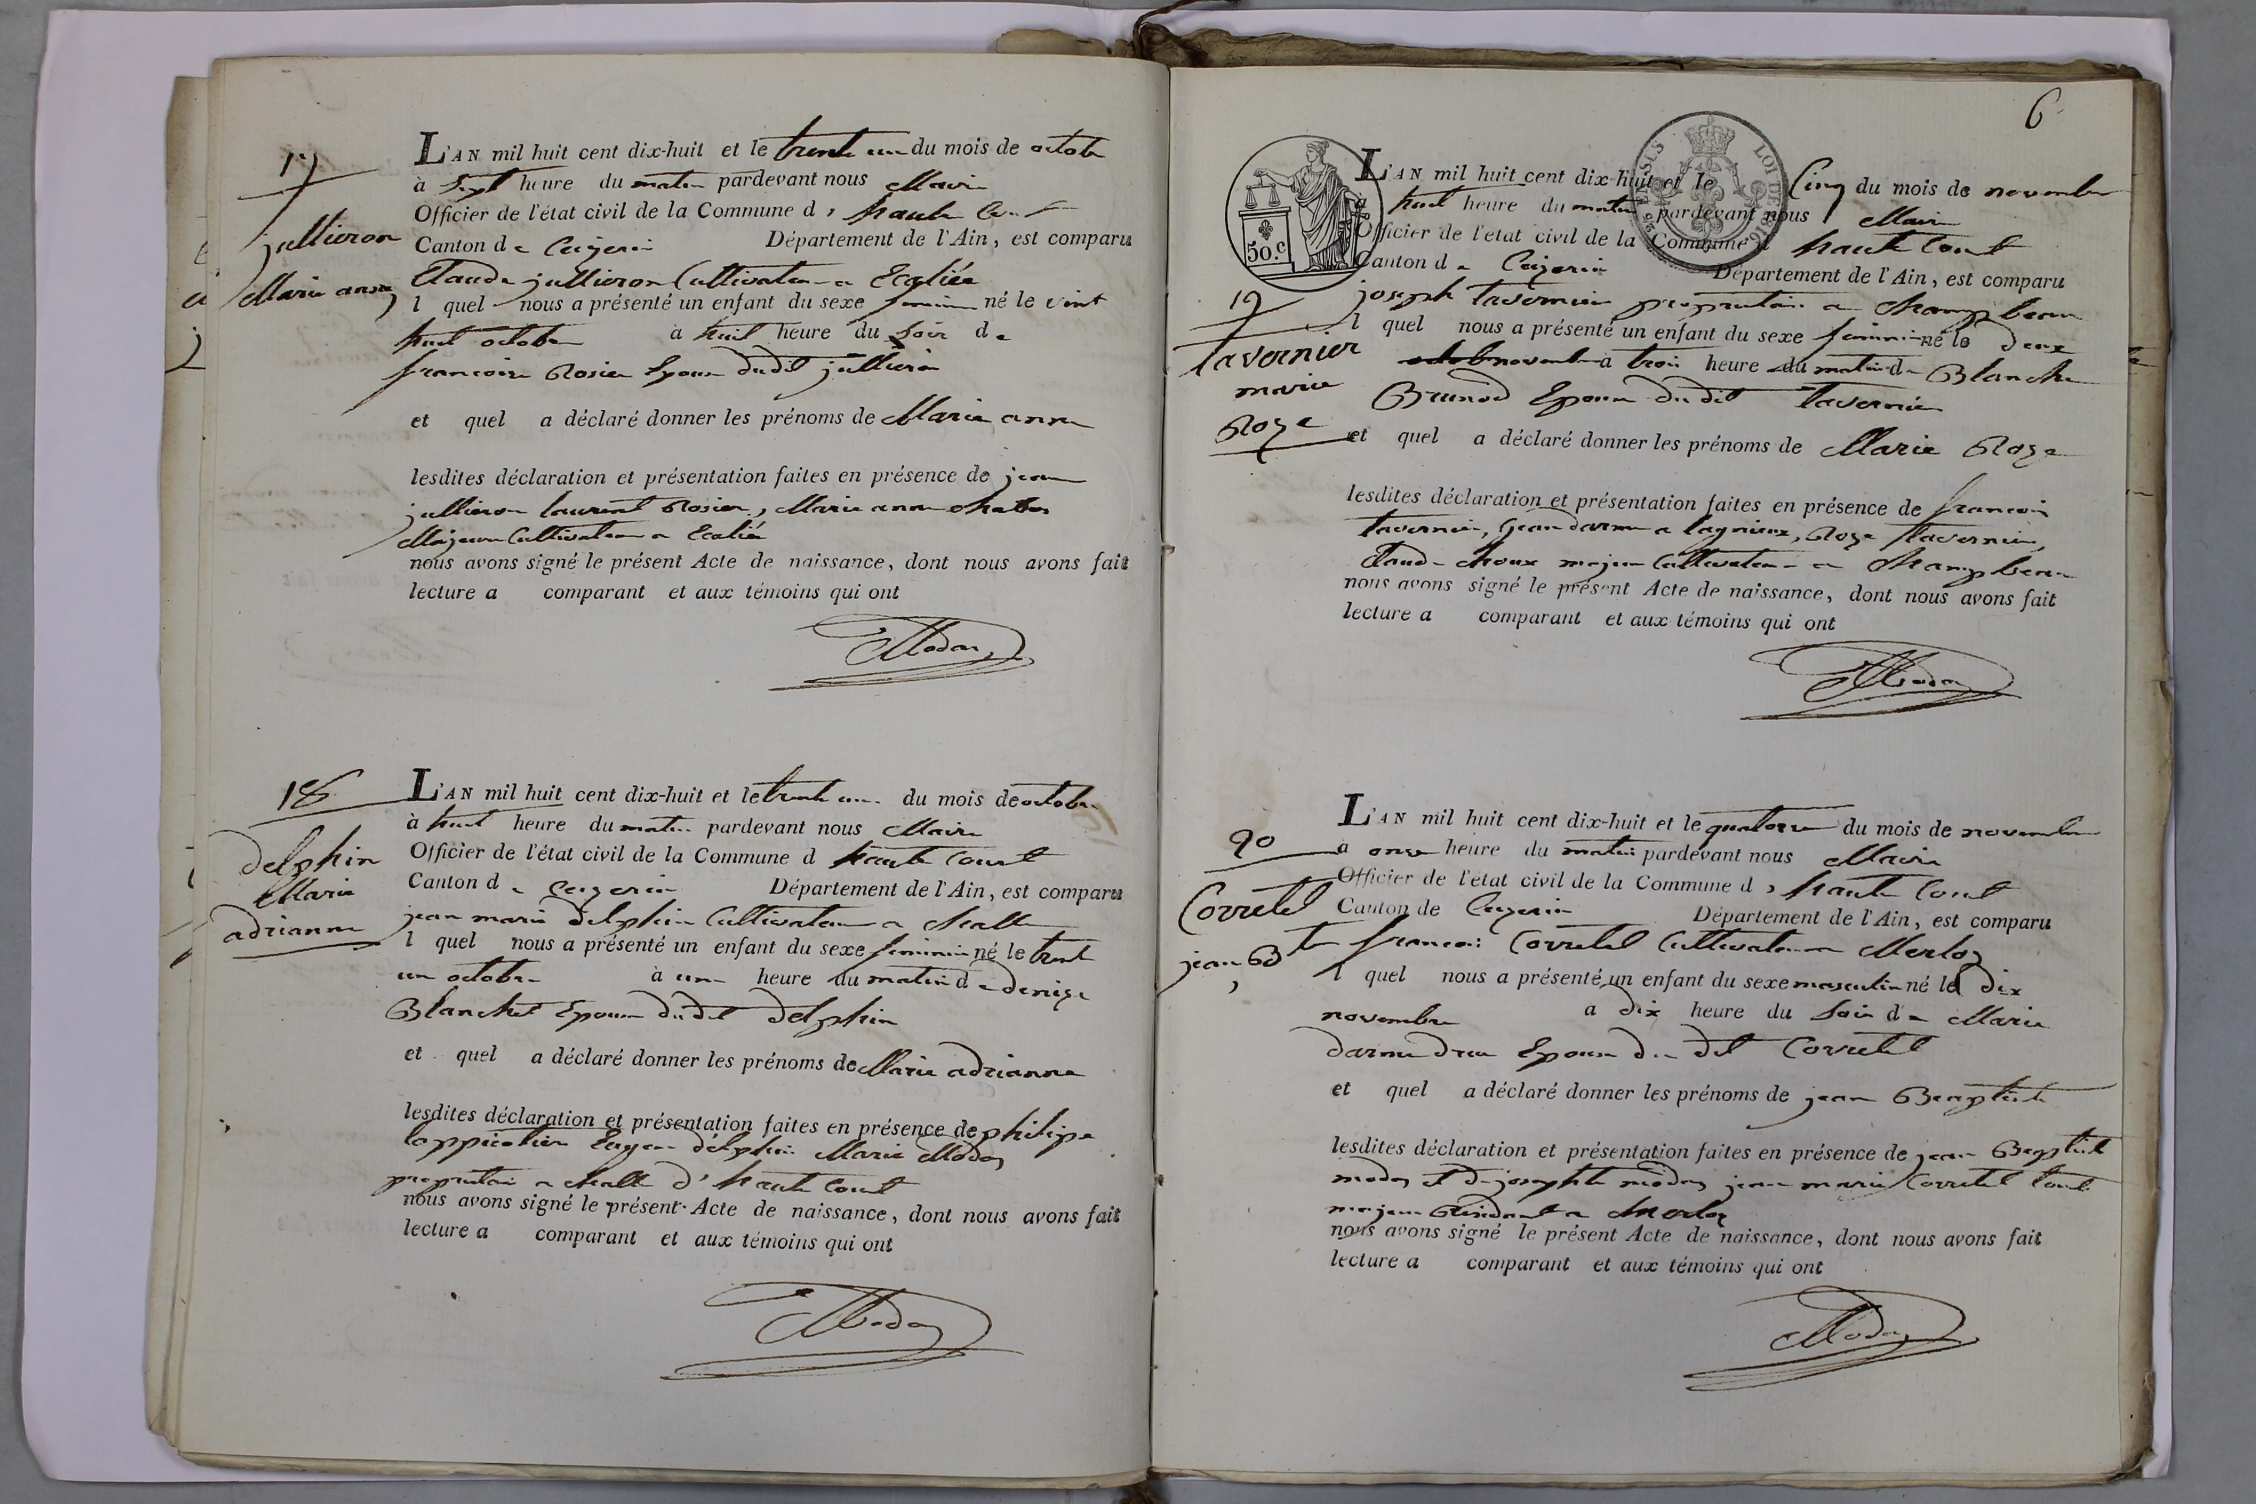 17
jullieron
Marie anne
L'AN mil huit cent dix-huit et le trente un du mois de octobre
à sept heure du matin pardevant nous Maire
Officier de l'état civil de la Commune d haute Court
Canton de Ceyzeria Département de l'Ain, est comparu
Claude jullieron Cultivateur a
l quel nous a présenté un enfant du sexe feminin né le vint
huit octobre à huit heure du soir de
francoise Rosier Epouse dudit jullieron
et quel a déclaré donner les prénoms de Marie anne
lesdites déclaration et présentation faites en présence de jean
jullieron laurent Rosier, Marie anne
Majeurs Cultivateur a
nous avons signé le présent Acte de naissance, dont nous avons fait
lecture a comparant et aux témoins qui ont
Modas
18
delphin
Marie
adrianne
L'AN mil huit cent dix-huit et le trente un du mois de octobre
à huit heure du matin pardevant nous Maire
Officier de l'état civil de la Commune d haute Court
Canton de Ceyzeria Département de l'Ain, est comparu
jean marie delphin Cultivateur a challe
l quel nous a présenté un enfant du sexe feminin né le trente
un octobre à une heure du matin de denize
Blanchet Epouse dudit delphin
et quel a déclaré donner les prénoms de Marie adrianne
lesdites déclaration et présentation faites en présence de philipe
delphin Marie Modas
propriétaire a challe d'haute Court
nous avons signé le présent Acte de naissance, dont nous avons fait
lecture a comparant et aux témoins qui ont
Modas
6
50.c
LOI DE 1816
19
tavernier
marie
Roze
L'AN mil huit cent dix-huit et le Cinq du mois de novembre
à huit heure du matin pardevant nous Maire
Officier de l'état civil de la Commune d haute Court
Canton de Ceyzeria Département de l'Ain, est comparu
joseph tavernier propriétaire a Champbeau
l quel nous a présenté un enfant du sexe feminin né le deux
novembre à trois heure du matin de Blanche
Brunod Epouse dudit tavernier
et quel a déclaré donner les prénoms de Marie Roze
lesdites déclaration et présentation faites en présence de francois
tavernier, Gean darme a lagnieux, Roze tavernier,
Claude choux majeur Cultivateur a Champbeau
nous avons signé le présent Acte de naissance, dont nous avons fait
lecture a comparant et aux témoins qui ont
Modas
20
Corretel
jean Bte
L'AN mil huit cent dix-huit et le quatorze du mois de novembre
à onze heure du matin pardevant nous Maire
Officier de l'état civil de la Commune d haute Court
Canton de Ceyzeria Département de l'Ain, est comparu
francois Corretel Cultivateur a Merloz
l quel nous a présenté un enfant du sexe masculin né le dix
novembre a dix heure du soir de Marie
Epouse du dit Corretel
et quel a déclaré donner les prénoms de jean Baaptiste
lesdites déclaration et présentation faites en présence de jean Baptiste
modas et de josephte modas jean marie Corretel tous
majeur Residant a Merloz
nous avons signé le présent Acte de naissance, dont nous avons fait
lecture a comparant et aux témoins qui ont
Modas